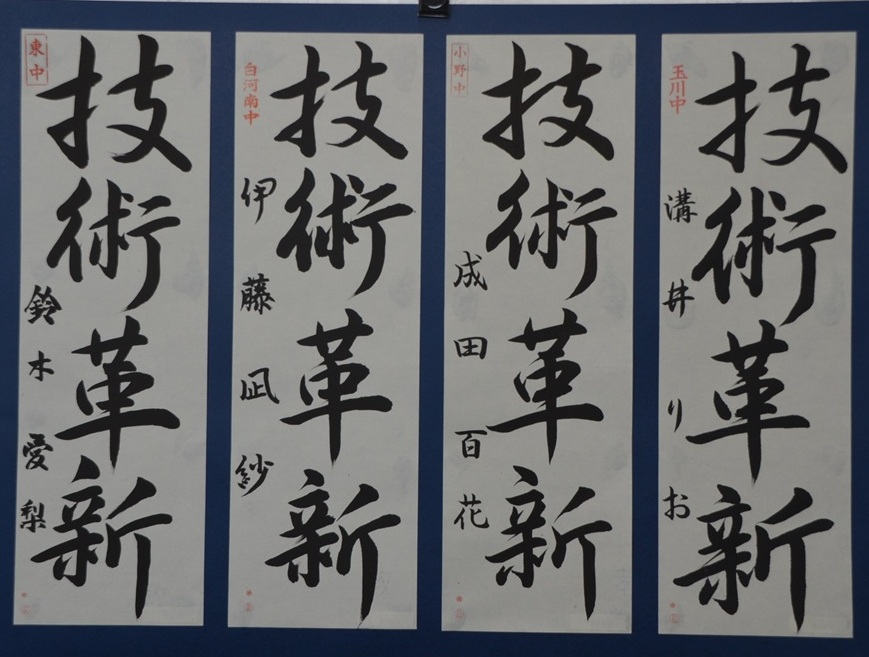 技術革新
玉川中
溝井りお
技術革新
小野中
成田百花
技術革新
白河南中
伊藤凪紗
技術革新
東中
鈴木愛梨